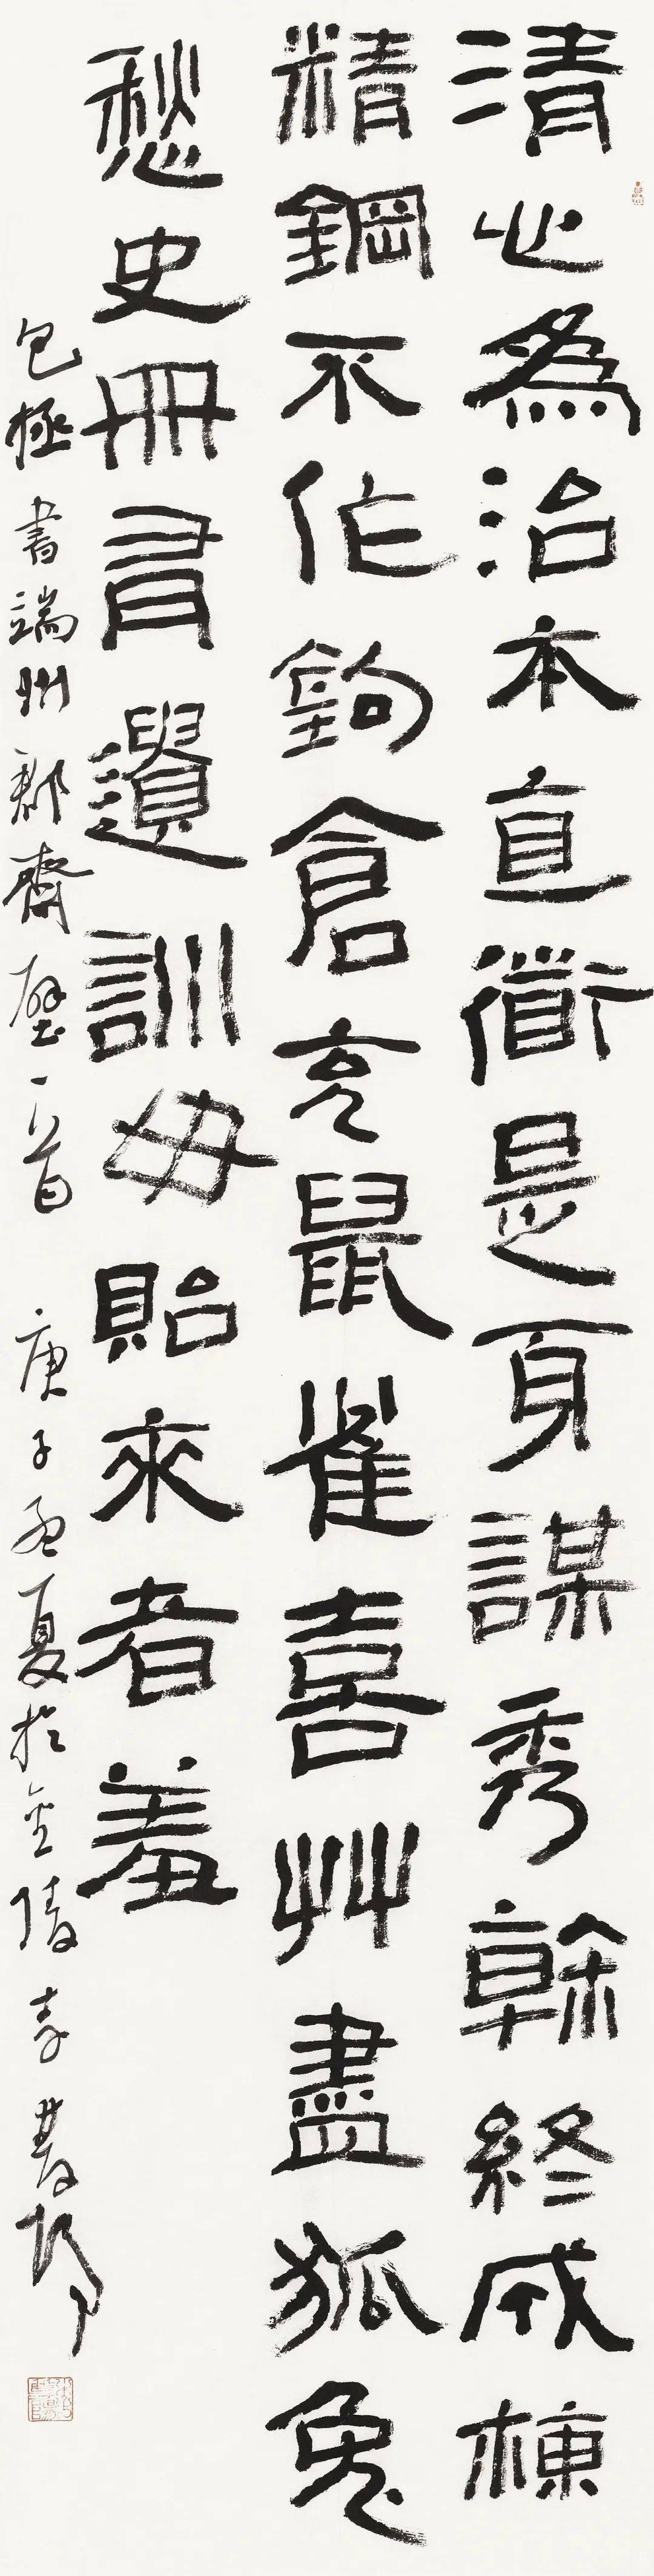 清心為治本直衜是身謀秀榦終成棟
精鋼不作鉤倉充鼠雀喜艸盡狐兔
愁史冊有遺訓毋貽來者羞
包拯書端州郡齋壁一首 庚子孟夏於金陵